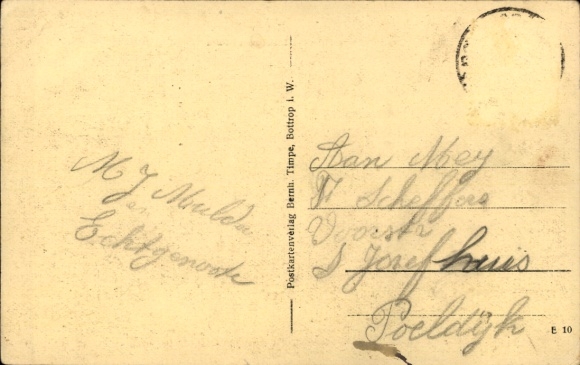 M J Mulder
en
Echtgenoote
Postkartenverlag Bernh. Timpe, Bottrop i. W.
Aan Mey
F Scheffers
Voorstr
S Jozefhuis
Poeldijk
E 10